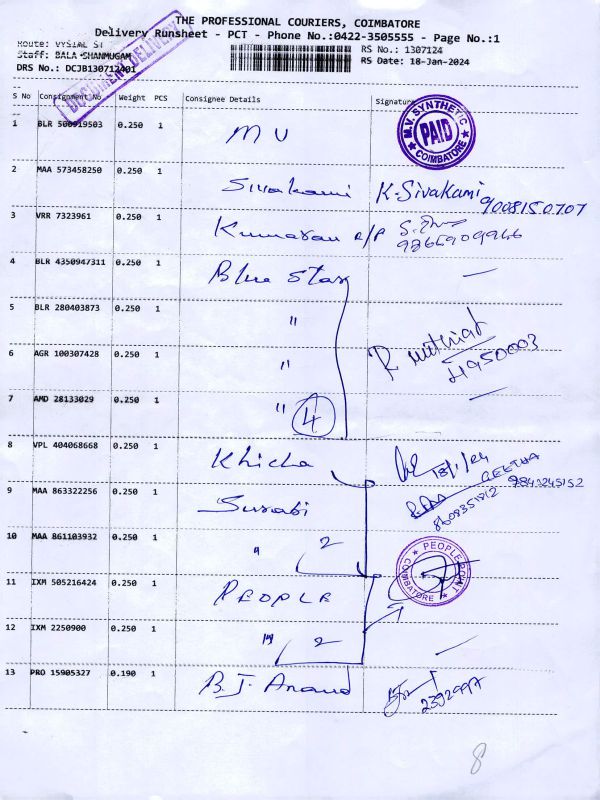 THE PROFESSIONAL COURIERS, COIMBATORE
Delivery Runsheet - PCT - Phone No.:0422-3505555 - Page No.:1
Route: VYSIAL ST
RS No.: 1307124
Staff: BALA SHANMUGAM
RS Date: 18-Jan-2024
DRS No.: DCJB130712401
DOCUMENT DELIVERY
S No Consignment No Weight PCS Consignee Details Signature
1 BLR 500919503 0.250 1 M V
M.V. SYNTHETIC PAID COIMBATORE
2 MAA 573458250 0.250 1 Sivakami K. Sivakami 9008150707
3 VRR 7323961 0.250 1 Kumaran
4 BLR 4350947311 0.250 1 Blue Star —
5 BLR 280403873 0.250 1 "
6 AGR 100307428 0.250 1 " 4950003
7 AMD 28133029 0.250 1 " 4 —
8 VPL 404068668 0.250 1 Khicha 18/1/24
9 MAA 863322256 0.250 1 Surabi GEETHA 9843245152
8608351812
10 MAA 861103932 0.250 1 " 2
PEOPLE POINT COIMBATORE
11 IXM 505216424 0.250 1 PEOPLE
12 IXM 2250900 0.250 1 " 2 —
13 PRO 15905327 0.190 1 B. J. Anand 2392997
8